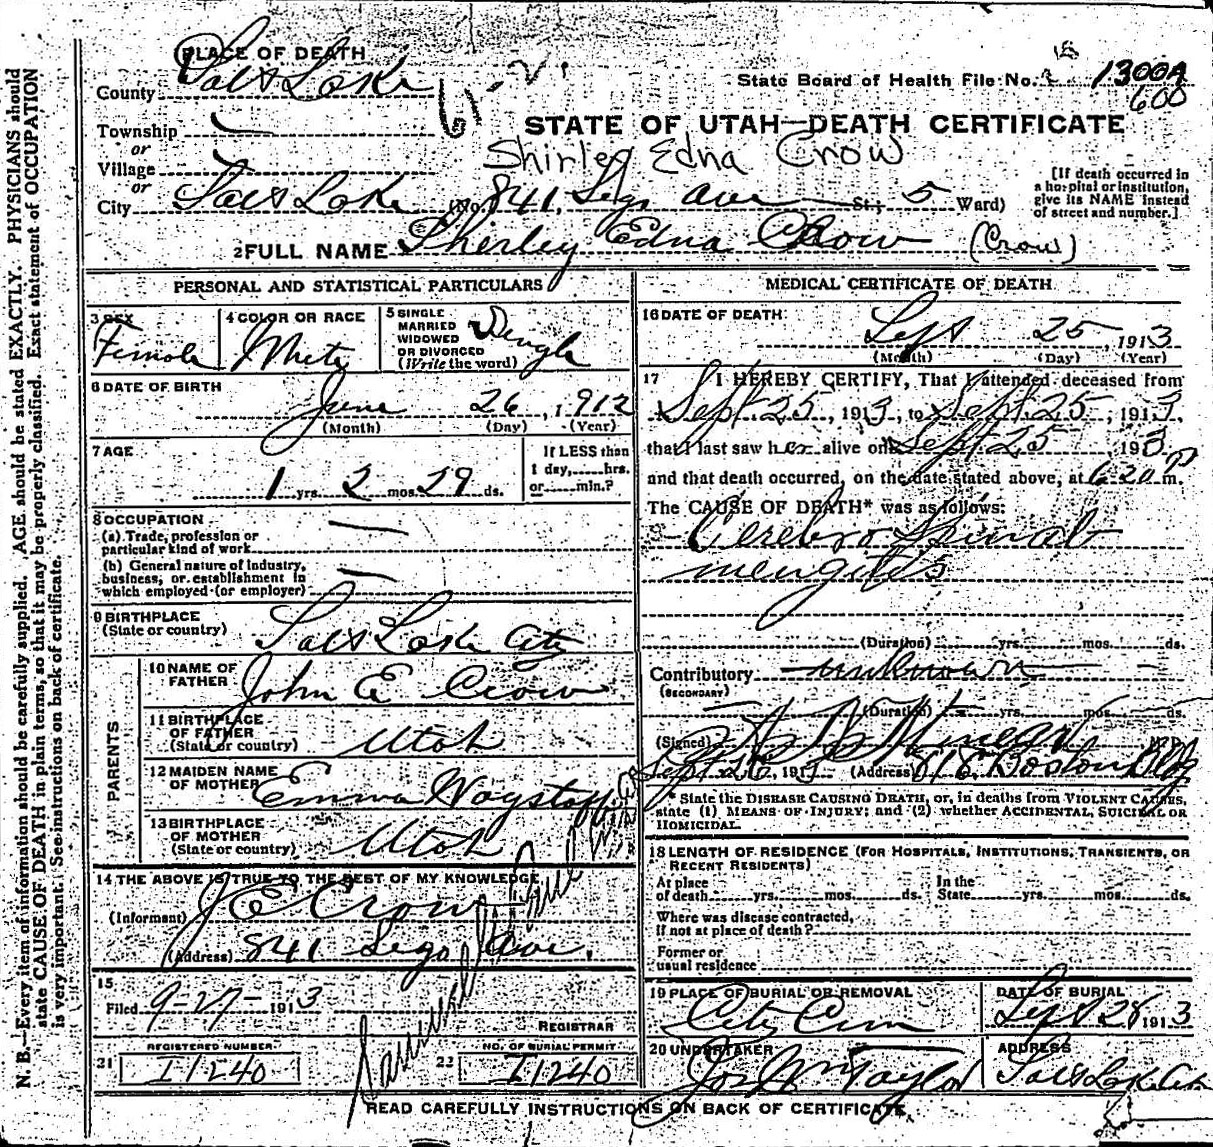 PLACE OF DEATH
State Board of Health File No. 1300A
600
County Salt Lake
STATE OF UTAH—DEATH CERTIFICATE
Township
or
Village
or
Shirley Edna Crow
City Salt Lake (No. 841, Lego Ave St.; 5 Ward)
[If death occurred in a hospital or institution, give its NAME instead of street and number.]
2 FULL NAME Sherley Edna Crow (Crow)
PERSONAL AND STATISTICAL PARTICULARS
3 SEX Female
4 COLOR OR RACE White
5 SINGLE MARRIED WIDOWED OR DIVORCED (Write the word) Single
6 DATE OF BIRTH
June 26, 1912
(Month) (Day) (Year)
7 AGE
1 yrs. 2 mos. 29 ds.
If LESS than 1 day,.....hrs. or.....min.?
8 OCCUPATION
(a) Trade, profession or particular kind of work
(b) General nature of industry, business, or establishment in which employed (or employer)
9 BIRTHPLACE (State or country) Salt Lake City
PARENTS
10 NAME OF FATHER John E Crow
11 BIRTHPLACE OF FATHER (State or country) Utah
12 MAIDEN NAME OF MOTHER Emma Waystaff
13 BIRTHPLACE OF MOTHER (State or country) Utah
14 THE ABOVE IS TRUE TO THE BEST OF MY KNOWLEDGE
(Informant) J E Crow
(Address) 841 Lego Ave.
15
Filed 9-27- 1913
REGISTRAR
REGISTERED NUMBER
21 I1240
NO. OF BURIAL PERMIT
22 I1240
MEDICAL CERTIFICATE OF DEATH
16 DATE OF DEATH
Sept 25, 1913
(Month) (Day) (Year)
17 I HEREBY CERTIFY, That I attended deceased from
Sept 25, 1913, to Sept. 25, 1913,
that I last saw her alive on Sept 25 1913
and that death occurred, on the date stated above, at 6-20 P m.
The CAUSE OF DEATH* was as follows:
Cerebro Spinal
mengites
(Duration) yrs. mos. ds.
Contributory unknown
(SECONDARY)
(Duration) yrs. mos. ds.
(Signed) M.D.
Sept 26, 1913 (Address) 816 Boston Bldg
*State the DISEASE CAUSING DEATH, or, in deaths from VIOLENT CAUSES, state (1) MEANS OF INJURY; and (2) whether ACCIDENTAL, SUICIDAL OR HOMICIDAL.
18 LENGTH OF RESIDENCE (FOR HOSPITALS, INSTITUTIONS, TRANSIENTS, OR RECENT RESIDENTS)
At place of death yrs. mos. ds. In the State yrs. mos. ds.
Where was disease contracted, if not at place of death?
Former or usual residence
19 PLACE OF BURIAL OR REMOVAL
City Cem
DATE OF BURIAL
Sept 28 1913
20 UNDERTAKER
Jos Wm Taylor
ADDRESS
Salt Lake City
READ CAREFULLY INSTRUCTIONS ON BACK OF CERTIFICATE.
N. B.—Every item of information should be carefully supplied. AGE should be stated EXACTLY. PHYSICIANS should
state CAUSE OF DEATH in plain terms, so that it may be properly classified. Exact statement of OCCUPATION
is very important. See instructions on back of certificate.